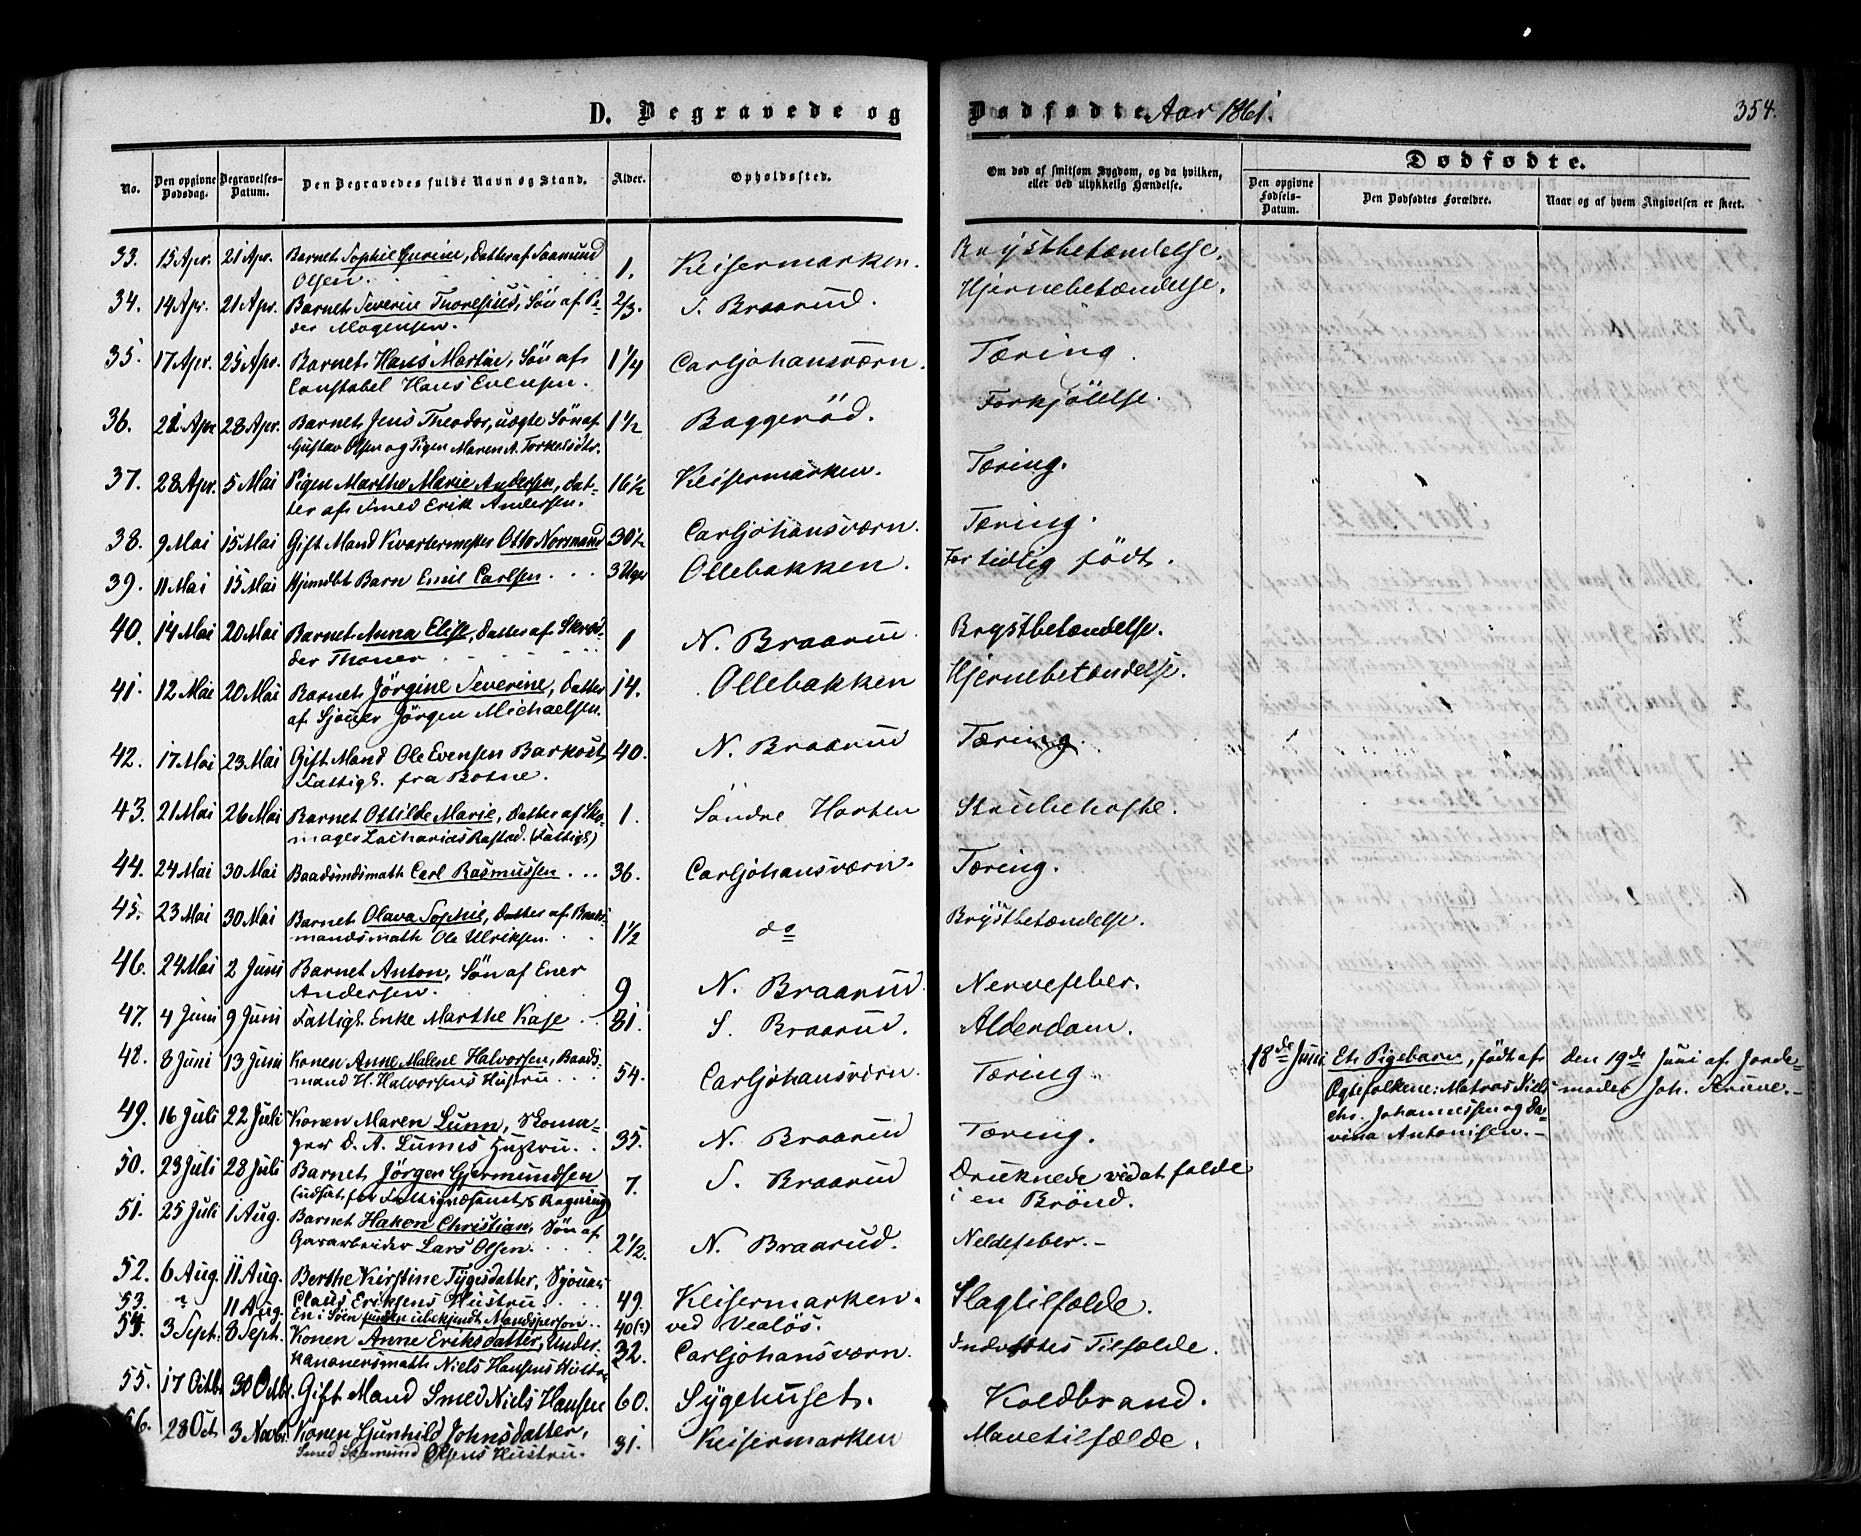 D. Begravede og
Dødfødte. Aar 1861.
354.
No.
Den opgivne Dødsdag.
Begravelses-Datum.
Den Begravedes fulde Navn og Stand.
Alder.
Opholdssted.
Om død af smitsom Sygdom, og da hvilken, eller ved ulykkelig Hændelse.
Dødfødte.
Den opgivne Fødsels-Datum.
Den Dødfødtes Forældre.
Naar og af hvem Angivelsen er skeet.
33. 15 Apr. 21 Apr. Barnet Sophie Gurine, Datter af Saamund
Olsen. 1. Keisermarken. Brystbetændelse.
34. 14 Apr. 21 Apr. Barnet Severin Thoresius, Søn af Pe-
der Mogensen. 2/3. S. Braarud. Hjernebetændelse.
35. 17 Apr. 25 Apr. Barnet Hans Martin, Søn af
Constabel Hans Evensen. 1 1/4 Carljohansværn. Tæring.
36. 21 Apr 28 Apr. Barnet Jens Theodor, uægte Søn af
Gustav Olsen og Pigen Maren A. Torkelsdtr. 1 1/2 Baggerød. Forkjølelse.
37. 28 Apr. 5 Mai Pigen Marthe Marie Andersen, Dat-
ter af Smed Erik Andersen. 16 1/2 Keisermarken. Tæring.
38. 9 Mai 15 Mai Gift Mand Kvartermester Otto Norsmand 30 1/2 Carljohansværn. Tæring.
39. 11 Mai 15 Mai Hjmdbt Barn Emil Carlsen 3 Uger Ollebakken. For tidlig født.
40. 14 Mai 20 Mai Barnet Anna Elise, Datter af Skræd-
der Thoner 1 N. Braarud Brystbetændelse.
41. 12 Mai 20 Mai Barnet Jörgine Severine, Datter
af Sjouer Jörgen Michaelsen. 14. Ollebakken Hjernebetændelse.
42. 17 Mai 23 Mai Gift Mand Ole Evensen Barkost,
Fattigl. fra Botne. 40. N. Braarud Tæring.
43. 21 Mai 26 Mai Barnet Ottilde Marie, Datter af Sko-
mager Zacharias Rastad. (Fattigl.) 1. Söndre Horten Strubehoste.
44. 24 Mai 30 Mai Baadsmdsmath Carl Rasmussen 36. Carljohansværn. Tæring.
45. 23 Mai 30 Mai Barnet Olava Sophie, Datter af Baads-
mandsmath Ole Ulriksen. 1 1/2 do Brystbetændelse.
46. 24 Mai 2 Juni Barnet Anton, Søn af Ener
Andersen. 9 N. Braarud. Nervefeber.
47. 4 Juni 9 Juni Fattigl. Enke Marthe Kase 81. S. Braarud. Alderdom.
48. 8 Juni 13 Juni Konen Anne Malene Halvorsen, Baads-
mand H. Halvorsens Hustru 54. Carljohansværn. Tæring
18de Juni Et Pigebarn, født af
Ægtefolkene: Matros Niels
Chr. Johannessen og Da-
vina Antonisen.
den 19de Juni af Jorde-
moder Joh. Struve.
49. 16 Juli 22 Juli Konen Maren Lunn, Skoma-
ger D. A. Lunns Hustru. 35. N. Braarud Tæring.
50. 23 Juli 28 Juli Barnet Jörgen Gjermundsen
(udsat for Fattigvæsenet 7. S. Braarud Druknede ved at falde
i en Brönd.
51. 25 Juli 1 Aug. Barnet Haken Christian, Søn af
Gaararbeider Lars Olsen. 2 1/2. N. Braarud. Neldefeber.
52. 6 Aug. 11 Aug. Berthe Kirstine Tygesdatter, Sjouer
Claus Eriksens Hustru 49. Keisermarken. Slagtilfælde.
53. " 11 Aug. En i Søen funden ubekjendt Mandsperson 40(?) ved Vealös.
54. 3 Sept. 8 Sept. Konen Anne Eriksdatter, Under-
kanonersmath Niels Hansens Hustru 32. Carljohansværn. Indvortes Tilfælde.
55. 17 Octbr 30 Octbr. Gift Mand Smed Niels Hansen 60. Sygehuset. Koldbrand.
56. 28 Oct 3 Novbr. Konen Gunhild Johnsdatter,
Smed Saamund Olsens Hustru. 31. Keisermarken Mavetilfælde.